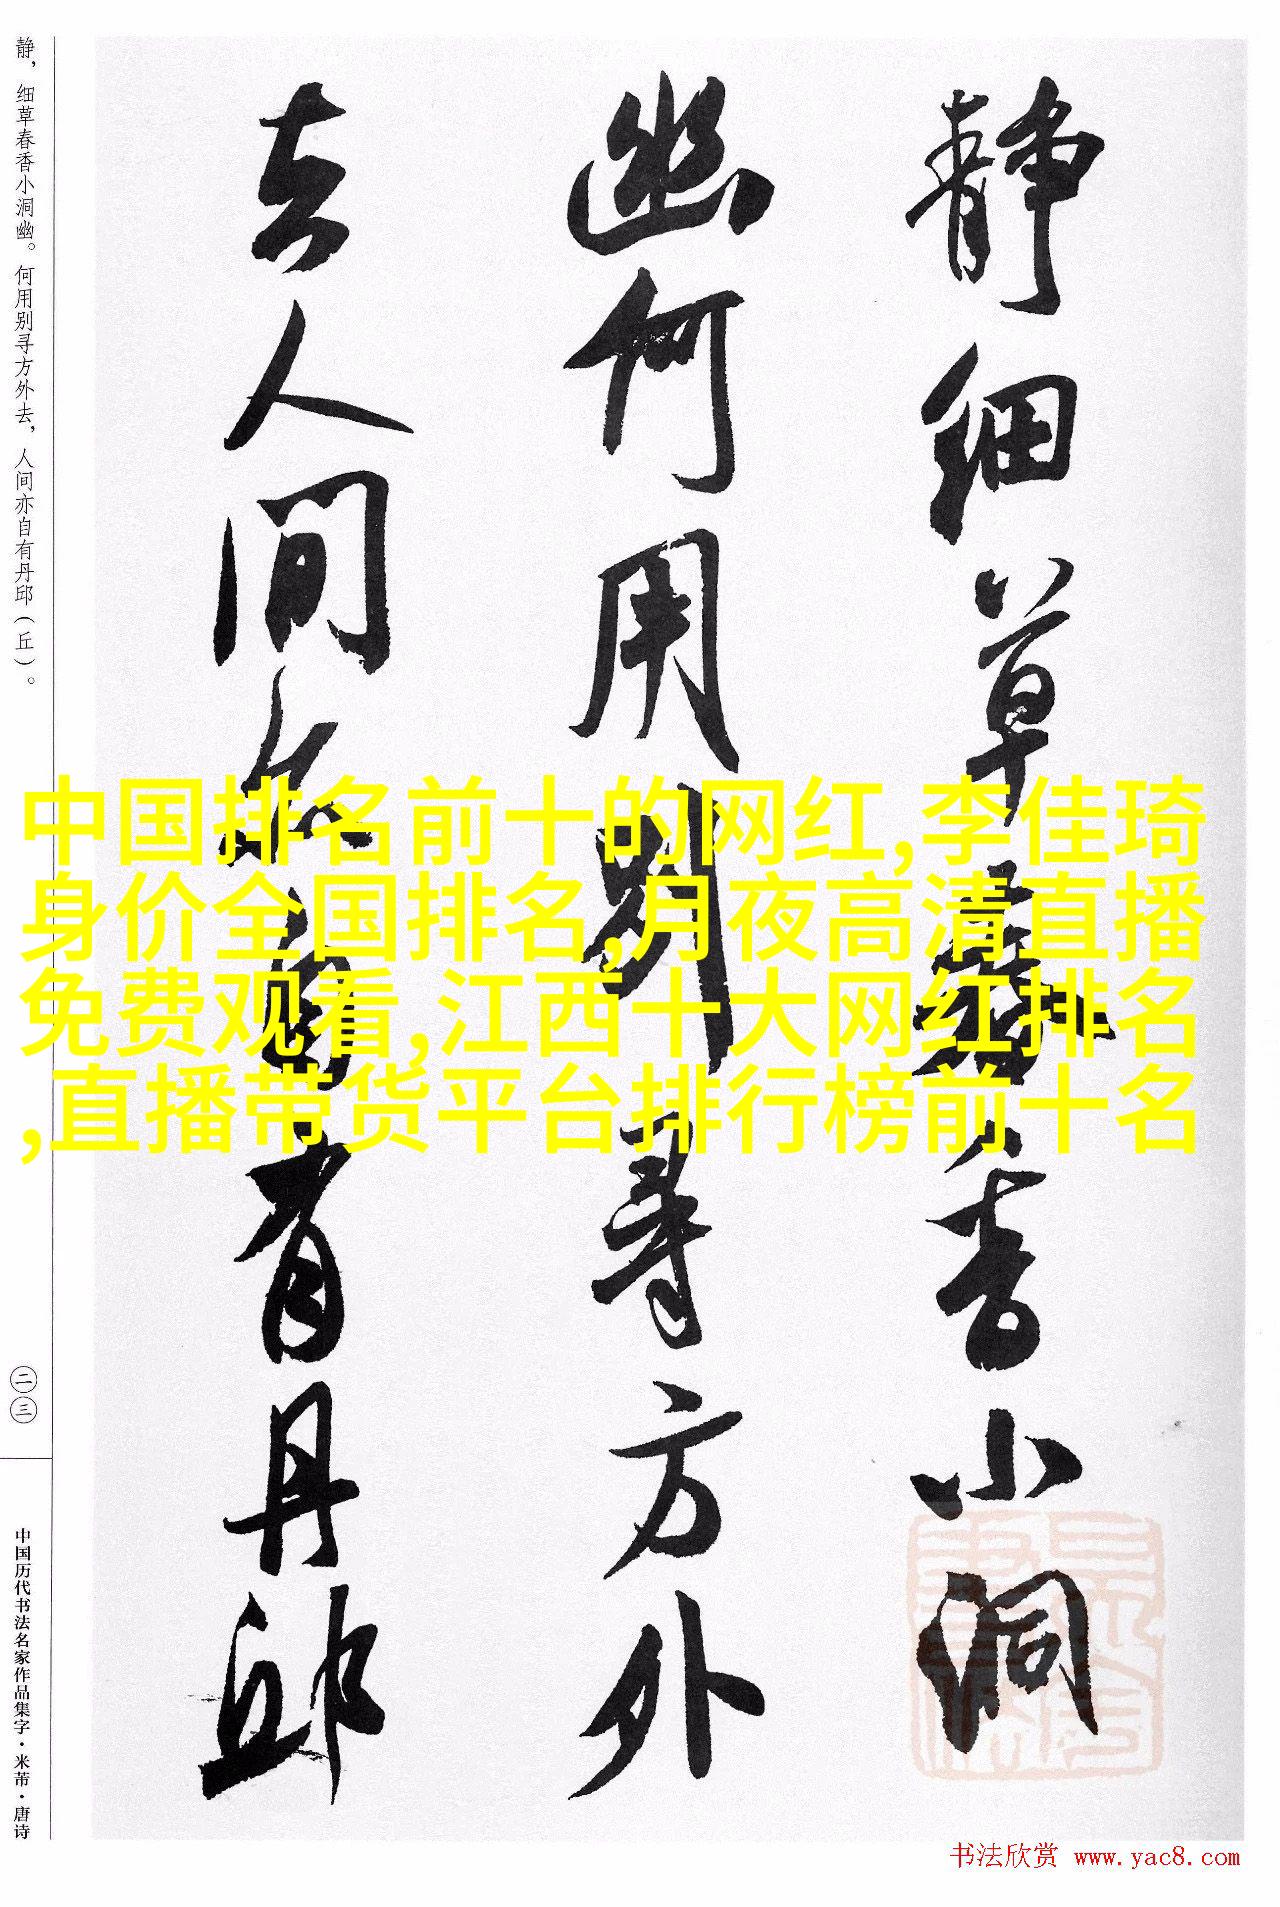 静细草春香小洞
幽何用别寻方外
去人间亦自有丹邱
静，细草春香小洞幽。何用别寻方外去，人间亦自有丹邱（丘）。
二三
中国历代书法名家作品集字·米芾·唐诗
中国排名前十的网红,李佳琦
身价全国排名,月夜高清直播
免费观看,江西十大网红排名
,直播带货平台排行榜前十名
书法欣赏 www.yac8.com